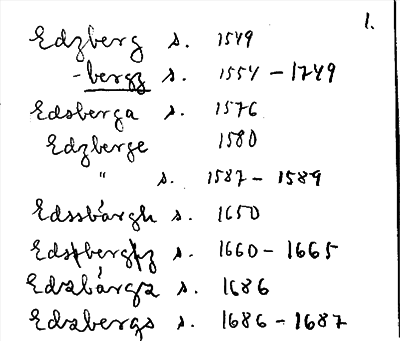 1.
Edzberg s. 1549
-bergz s. 1554-1749
Edsberga s. 1576
Edzberge 1580
" s. 1587-1589
Edssbårgh s. 1650
s. 1660-1665
s. 1686
Edzbergs s. 1686-1687